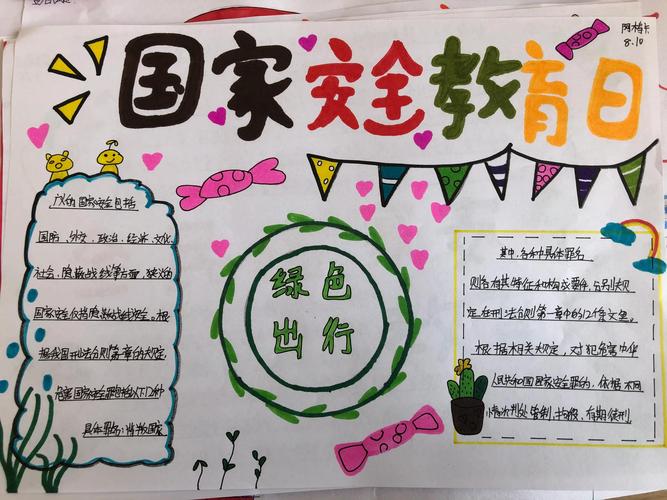 国家安全教育日
8.10
广义的国家安全包括
国防、外交、政治、经济、文化、
社会、隐蔽战线等方面,狭义的
国家安全仅指隐蔽战线安全。根
据我国刑法分则第一章的规定,
危害国家安全罪包括以下12种
具体罪名:背叛国家
绿色
出行
其中,各种具体罪名
则各有其特征和构成要件,分别规
定在刑法分则第一章中的12条文里。
根据相关规定,对犯危害中华
人民共和国国家安全罪的,依据不同
情况判处管制、拘役、有期徒刑